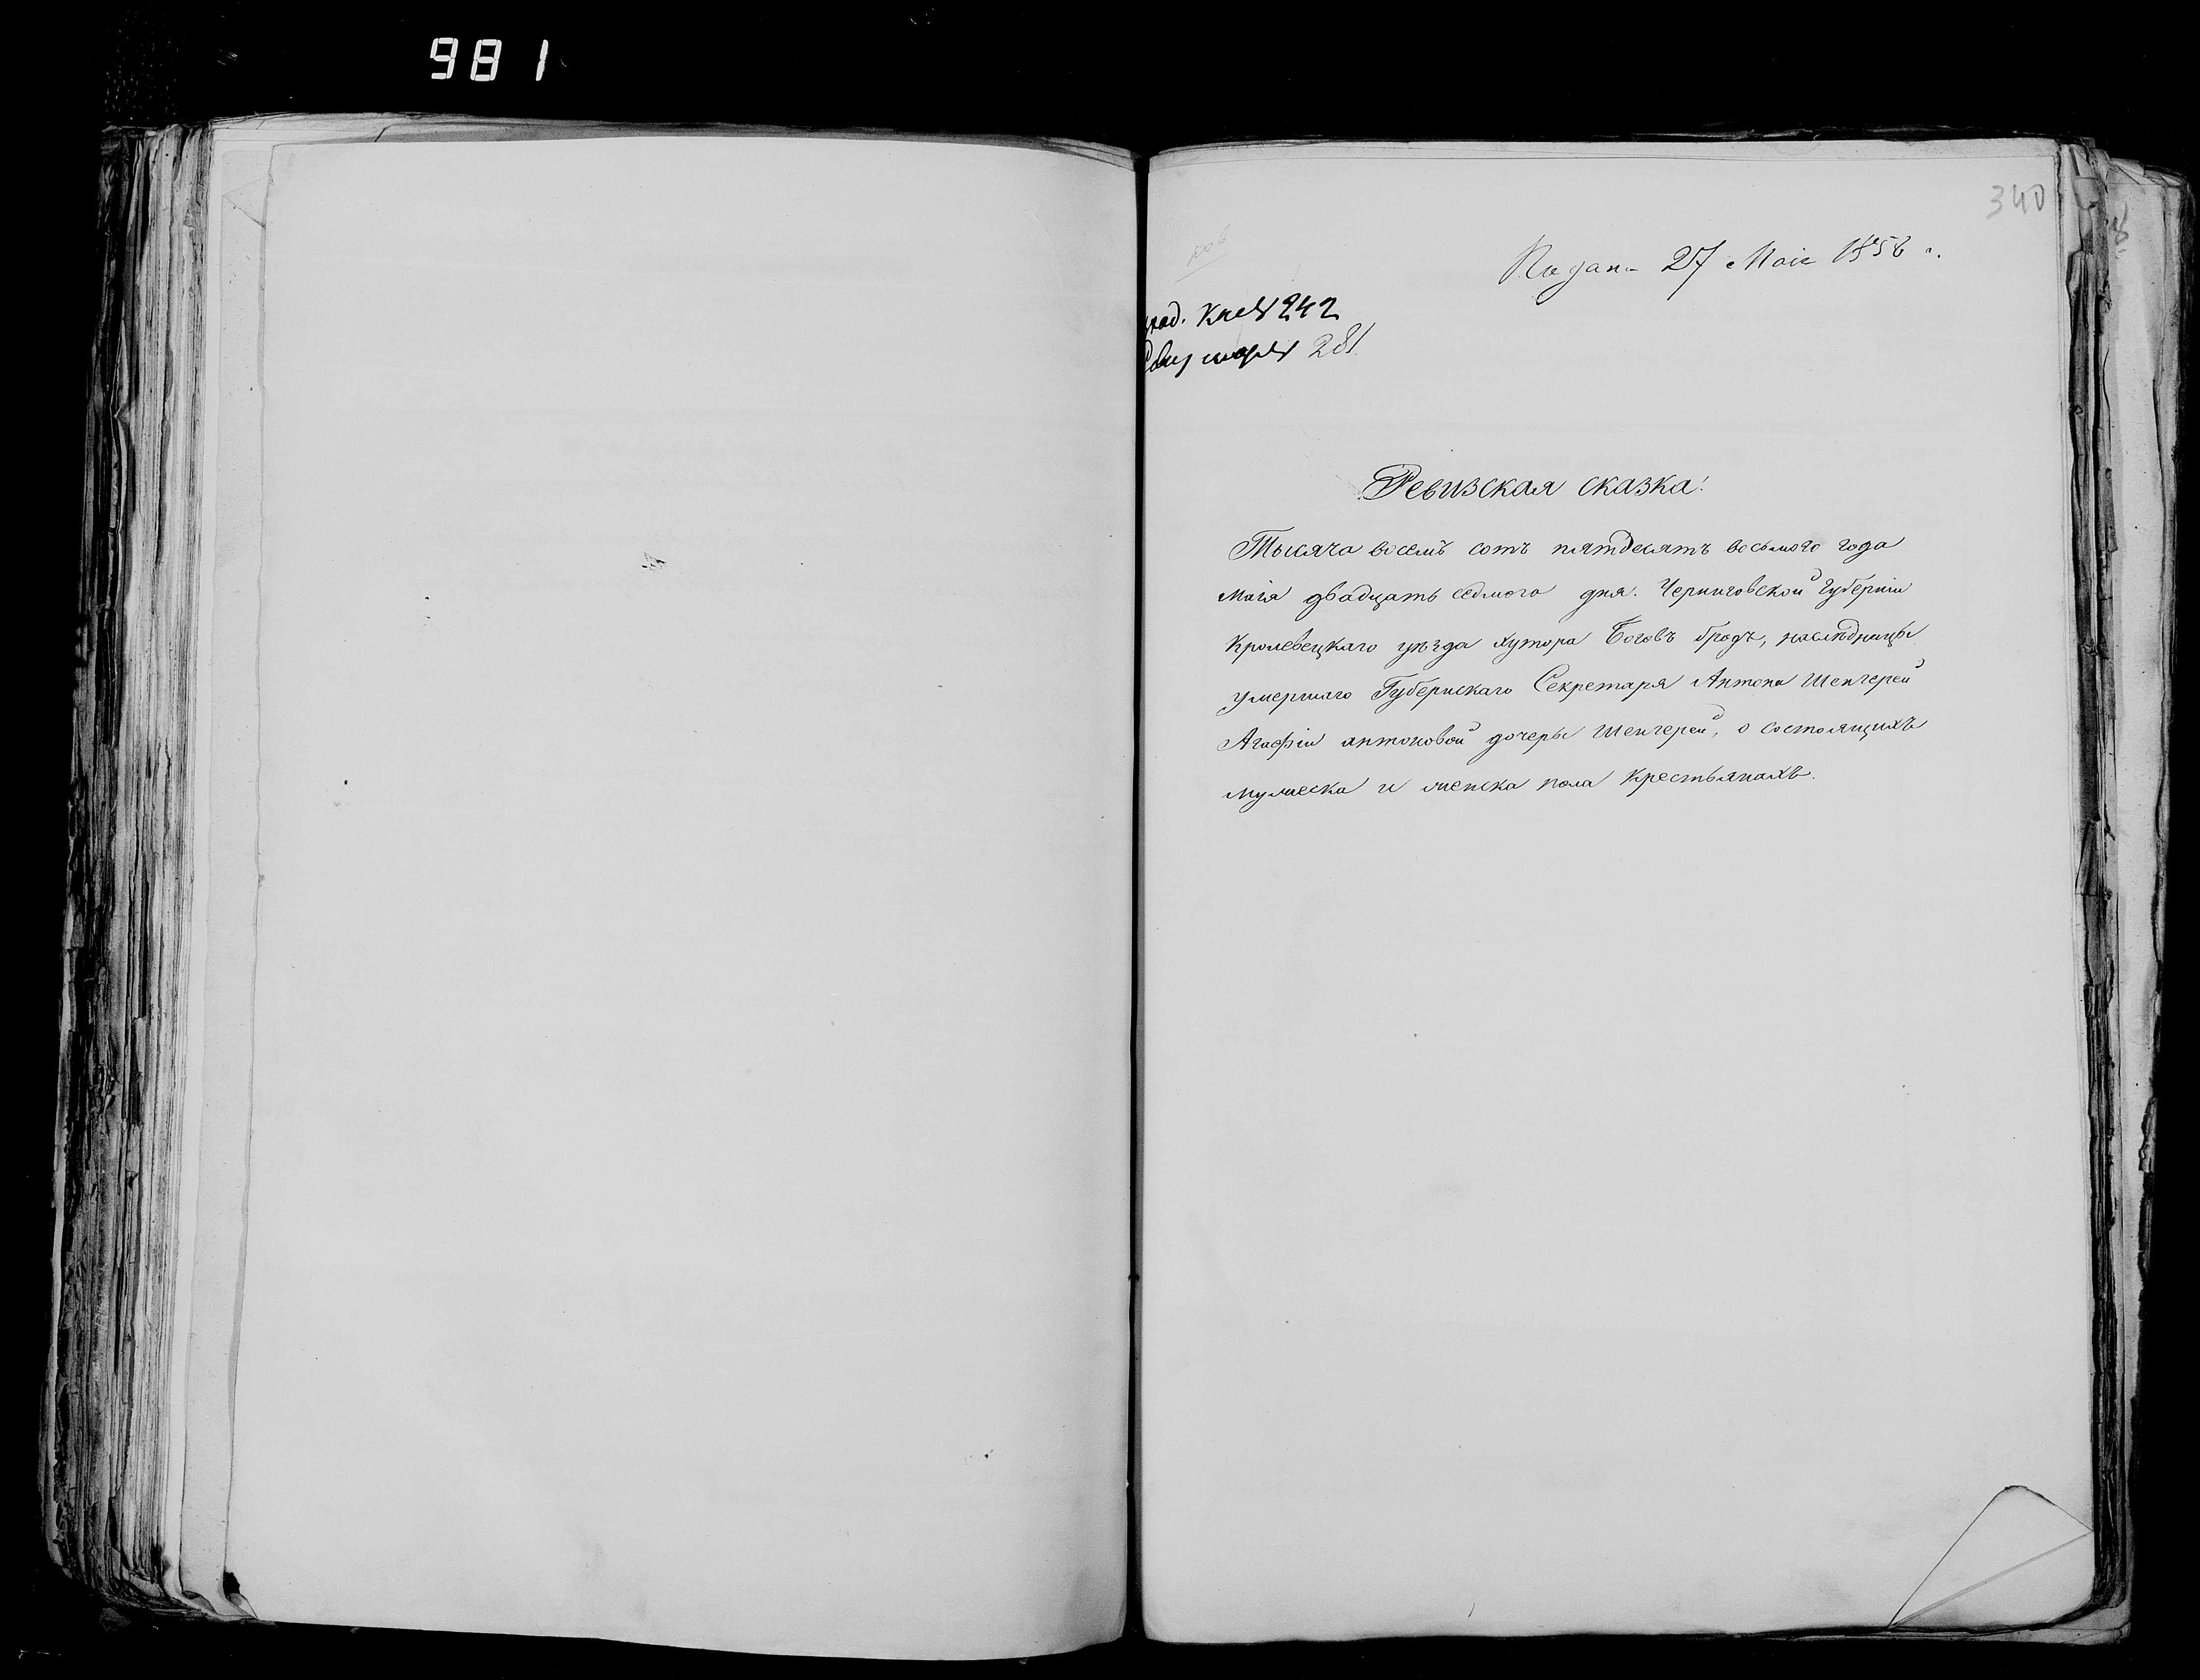 981
340
Подан. 27 Маiя 1858 г.
242
281
Ревизская сказка.
Тысяча восемъ сотъ пятдесятъ восьмого года
маiя двадцать седмого дня. Черниговской Губернiи
Кролевецкаго уѣзда хутора Боговъ бродъ, наслѣдницы
умершаго Губернскаго Секретаря Антона Шенгерей
Агафiи антоновой дочеры Шенгерей, о состоящихъ
мужеска и женска пола Крестьянахъ.